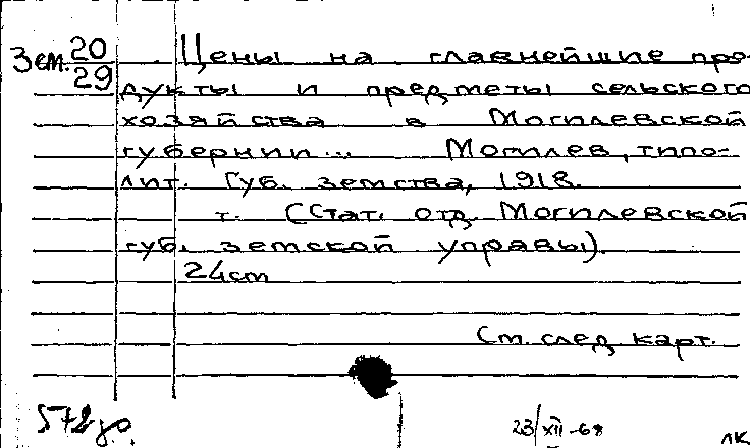 Зем. 20/29 Цены на главнейшие про-
дукты и предметы сельского
хозяйства в Могилевской
губернии... Могилев, типо-
лит. Губ. земства, 1918.
т. (Стат. отд. Могилевской
губ. земской управы).
24 cm
См. след. карт.
23/XII-68